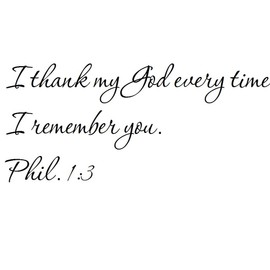 I thank my God every time
I remember you.
Phil. 1:3